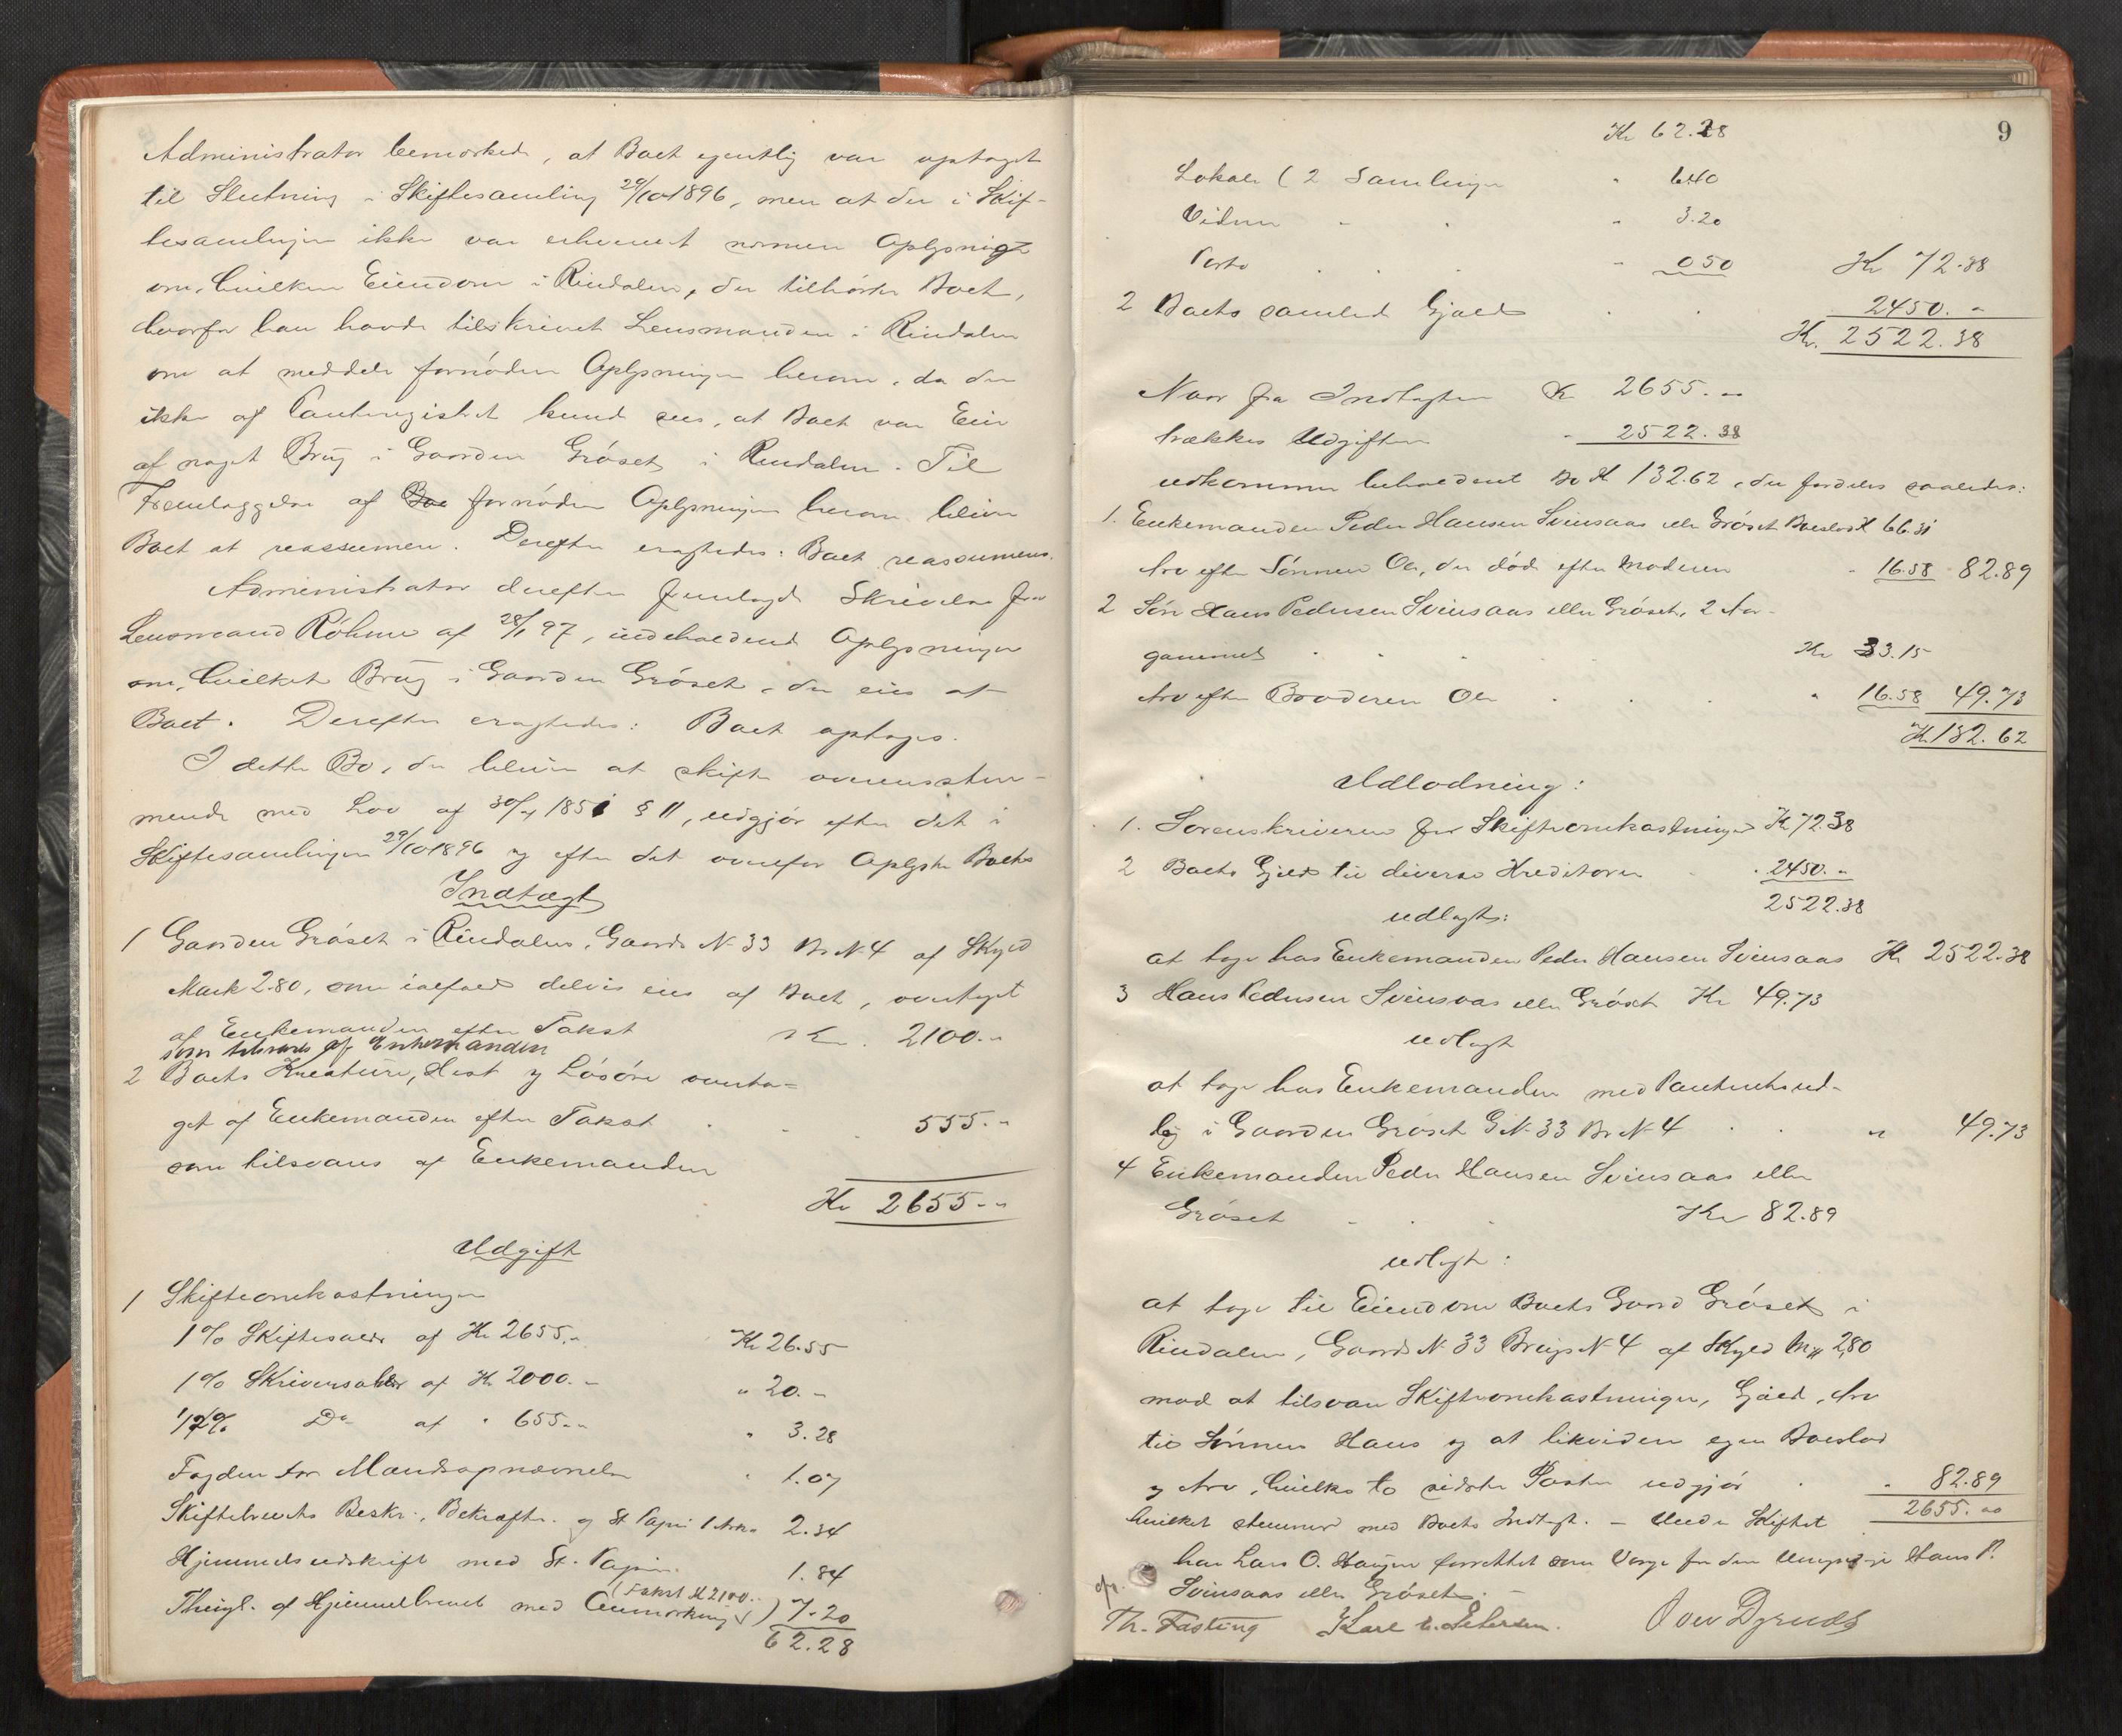 Administrator bemærkede, at Boet egentlig var optaget
til Slutning i Skiftesamling 29/10 1896, men at der i Skif-
tesamlingen ikke var erhvervet nogen Oplysning
om, hvilken Eiendom i Rindalen, der tilhørte Boet,
hvorfor han havde tilskrevet Lensmanden i Rindalen
om at meddele fornødne Oplysninger herom, da der
ikke af Panteregistret kunde sees, at Boet var Eier
af noget Brug i Gaarden Grøset i Rindalen. Til
Fremlæggelse af Boe fornødne Oplysninger herom bliver
Boet at reassumere. Derefter eragtedes: Boet reassumeres.
Administrator derefter fremlagde Skrivelse fra
Lensmand Röhme af 28/1 97, indeholdende Oplysninger
om, hvilket Brug i Gaarden Grøset, der eies af
Boet. Derefter eragtedes: Boet optages.
I dette Bo, der bliver at skifte overensstem-
mende med Lov af 30/7 1851 § 11, udgjør efter det i
Skiftesamlingen 29/10 1896 og efter det ovenfor Oplyste Boets
Indtægt
1 Gaarden Grøset i Rindalen, Gaards N 33 Br N 4 af Skyld
Mark 2.80, som ialfald delvis eies af Boet, overtaget
af Enkemanden efter Takst Kr. 2100.-
som tilsvares af Enkemanden
2 Boets Kreature, Hest og Løsøre overta=
get af Enkemanden efter Takst 555.-
som tilsvares af Enkemanden
Kr 2655.-
Udgift
1 Skifteomkostninger
1% Skiftesalær af Kr 2655.- Kr 26.55
1% Skriversalær af Kr 2000.- " 20.-
1/2% Do af " 655.- " 3.28
Fogden for Mandsopnævnelse " 1.07
Skiftebrevets Beskr., Bekræftn. og St. Papir 1 Ark 2.34
Hjemmelsudskrift med St. Papir 1.84
(Takst Kr 2100.-
Thingl. af Hjemmelbrevet med Anmerkning) 7.20
62.28
9
Kr 62.28
Lokale (2 Samlinger " 6.40
Vidner " 3.20
Porto " 0.50 Kr 72.38
2 Boets samlede Gjæld 2450.-
Kr. 2522.38
Naar fra Indtægten Kr 2655.-
trækkes Udgiften " 2522.38
udkommer beholdent Bo Kr 132.62, der fordeles saaledes:
1. Enkemanden Peder Hansen Svinsaas eller Grøset Boeslod Kr 66.31
Arv efter Sønnen Ole, der døde efter Moderen " 16.58 82.89
2 Søn Hans Pedersen Svinsaas eller Grøset, 2 Aar
gammel Kr 33.15
Arv efter Broderen Ole " 16.58 49.73
Kr 132.62
Udlodning:
1. Sorenskriveren for Skifteomkostninger Kr 72.38
2 Boets Gjæld til diverse Kreditorer " 2450.-
2522.38
udlagt:
at tage hos Enkemanden Peder Hansen Svinsaas Kr 2522.38
3 Hans Pedersen Svinsaas eller Grøset Kr 49.73
udlagt
at tage hos Enkemanden med Panteretsud-
læg i Gaarden Grøset G N 33 Br N 4 " 49.73
4 Enkemanden Peder Hansen Svinsaas eller
Grøset Kr 82.89
udlagt:
at tage til Eiendom Boets Gaard Grøset i
Rindalen, Gaards N 33 Brugs N 4 af Skyld M 2,80
mod at tilsvare Skifteomkostninger, Gjæld, Arv
til Sønnen Hans og at likvidere egen Boeslod
og Arv, hvilke to sidste Poster udgjør " 82.89
hvilket stemmer med Boets Indtægt. - Under Skiftet 2655.00
har Lars O. Haugen forrettet som Værge for den Umyndige Hans P.
Svinsaas eller Grøset. -
Th. Fasting Karl E. Petersen. Iver Dyrnes